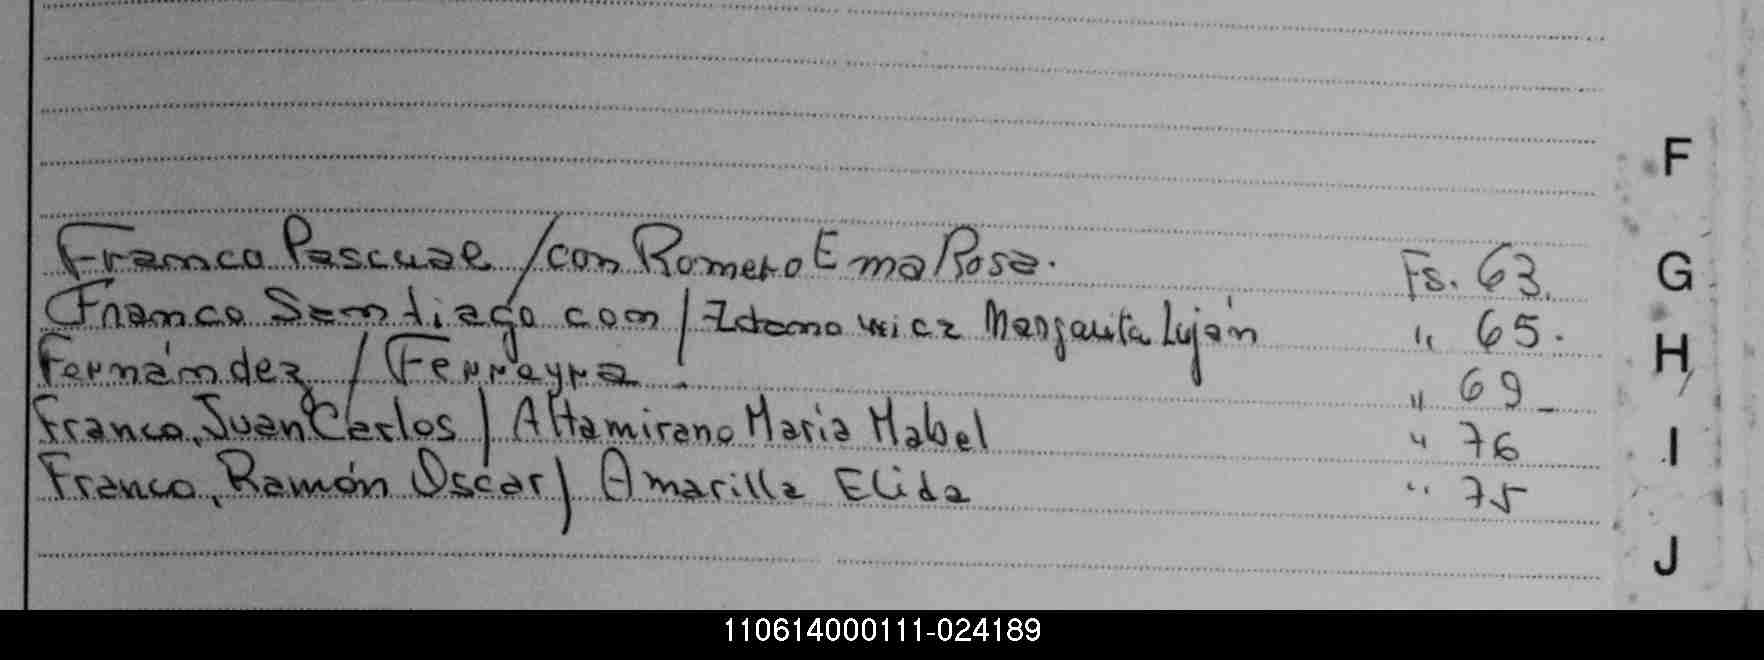 Franco Pascual / con Romero Ema Rosa. Fs. 63.
Franco Santiago con / Zdanowicz Margarita Luján " 65.
Fernández / Ferreyra. " 69_
Franco, Juan Carlos / Altamirano Maria Mabel " 76
Franco, Ramón Oscar / Amarilla Elida " 75
F
G
H
I
J
110614000111-024189